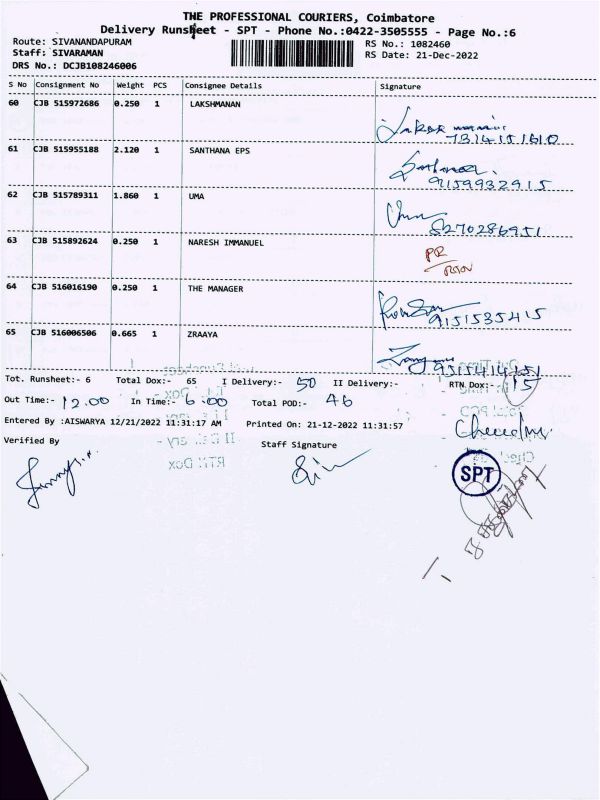 THE PROFESSIONAL COURIERS, Coimbatore
Delivery Runsheet - SPT - Phone No.:0422-3505555 - Page No.:6
Route: SIVANANDAPURAM
Staff: SIVARAMAN
DRS No.: DCJB108246006
RS No.: 1082460
RS Date: 21-Dec-2022
S No Consignment No Weight PCS Consignee Details Signature
60 CJB 515972686 0.250 1 LAKSHMANAN
61 CJB 515955188 2.120 1 SANTHANA EPS
9159932915
62 CJB 515789311 1.860 1 UMA
Uma
8270286951
63 CJB 515892624 0.250 1 NARESH IMMANUEL
64 CJB 516016190 0.250 1 THE MANAGER
9151535415
65 CJB 516006506 0.665 1 ZRAAYA
Tot. Runsheet:- 6 Total Dox:- 65 I Delivery:- 50 II Delivery:- RTN Dox:- 15
Out Time:- 12.00 In Time:- 6.00 Total POD:- 46
Entered By :AISWARYA 12/21/2022 11:31:17 AM Printed On: 21-12-2022 11:31:57
Verified By Staff Signature
SPT